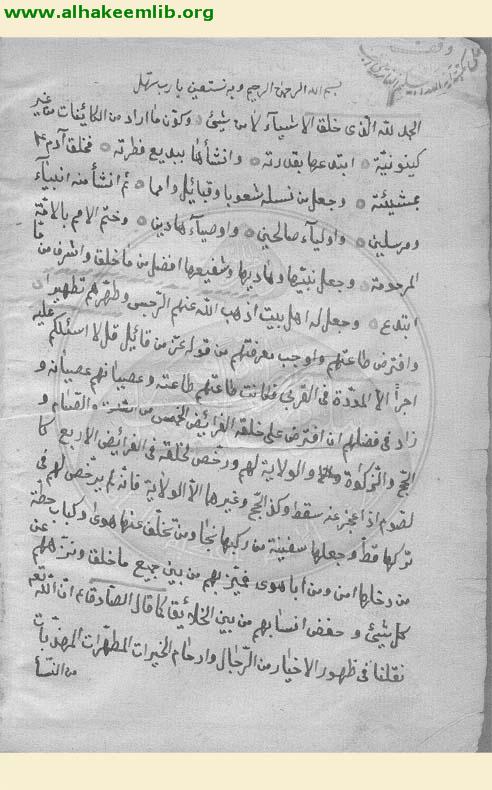 www.alhakeemlib.org
وقف
بسم الله الرحمن الرحيم وبه نستعين يا رب سهل
الحمد لله الذي خلق الاشياء لا من شيئ وكون ما اراد من الكائنات من غير
كينونية ابتدعها بقدرته وانشأها ببديع فطرته فخلق آدم ٤
بمشيئته وجعل من نسله شعوبا وقبائل وامما ثم انشأ منه انبياء
ومرسلين واولياء صالحين واوصياء هادين وختم الامم بالامة
المرحومة وجعل نبيها وهاديها وشفيعها افضل من ما خلق واشرف من ما
ابتدع وجعل له اهل بيت اذهب الله عنهم الرجس وطهرهم تطهيرا
وافترض طاعتهم واوجب معرفتهم من قوله عز من قائل قل لا اسئلكم عليه
اجرا الا المودة في القربى فكانت طاعتهم طاعته وعصيانهم عصيانه و
زاد في فضلهم ان افترض على خلقه الفرائض الخمس من الصلوة والصيام و
الحج والزكوة والولاية لهم ورخص لخلقه في الفرائض الاربع كا
لصوم اذا عجز عنه سقط وكذا الحج وغيرها الا الولاية فانه لم يرخص لهم في
تركها قط وجعلها سفينة من ركبها نجا ومن تخلف عنها هوى وكباب حطة
من دخلها امن ومن ابا هوى فميزهم من بين جميع ما خلق ونزههم عن
كل شيئ وحفض انسابهم من بين الخلائق كما قال الصادق ع ان الله تع
نقلنا في ظهور الاخيار من الرجال وارحام الخيرات المطهرات المهذبات
من النسأ